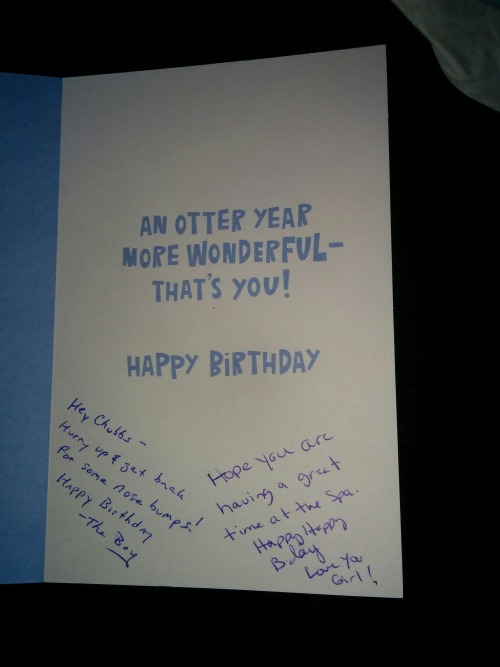 AN OTTER YEAR
MORE WONDERFUL-
THAT'S YOU!
HAPPY BiRTHDAY
Hey Chubbs -
Hurry up & get back
for some nose bumps!
Happy Birthday
- The Boy
Hope you are
having a great
time at the Spa.
Happy Happy
B-day
Love You
Girl!